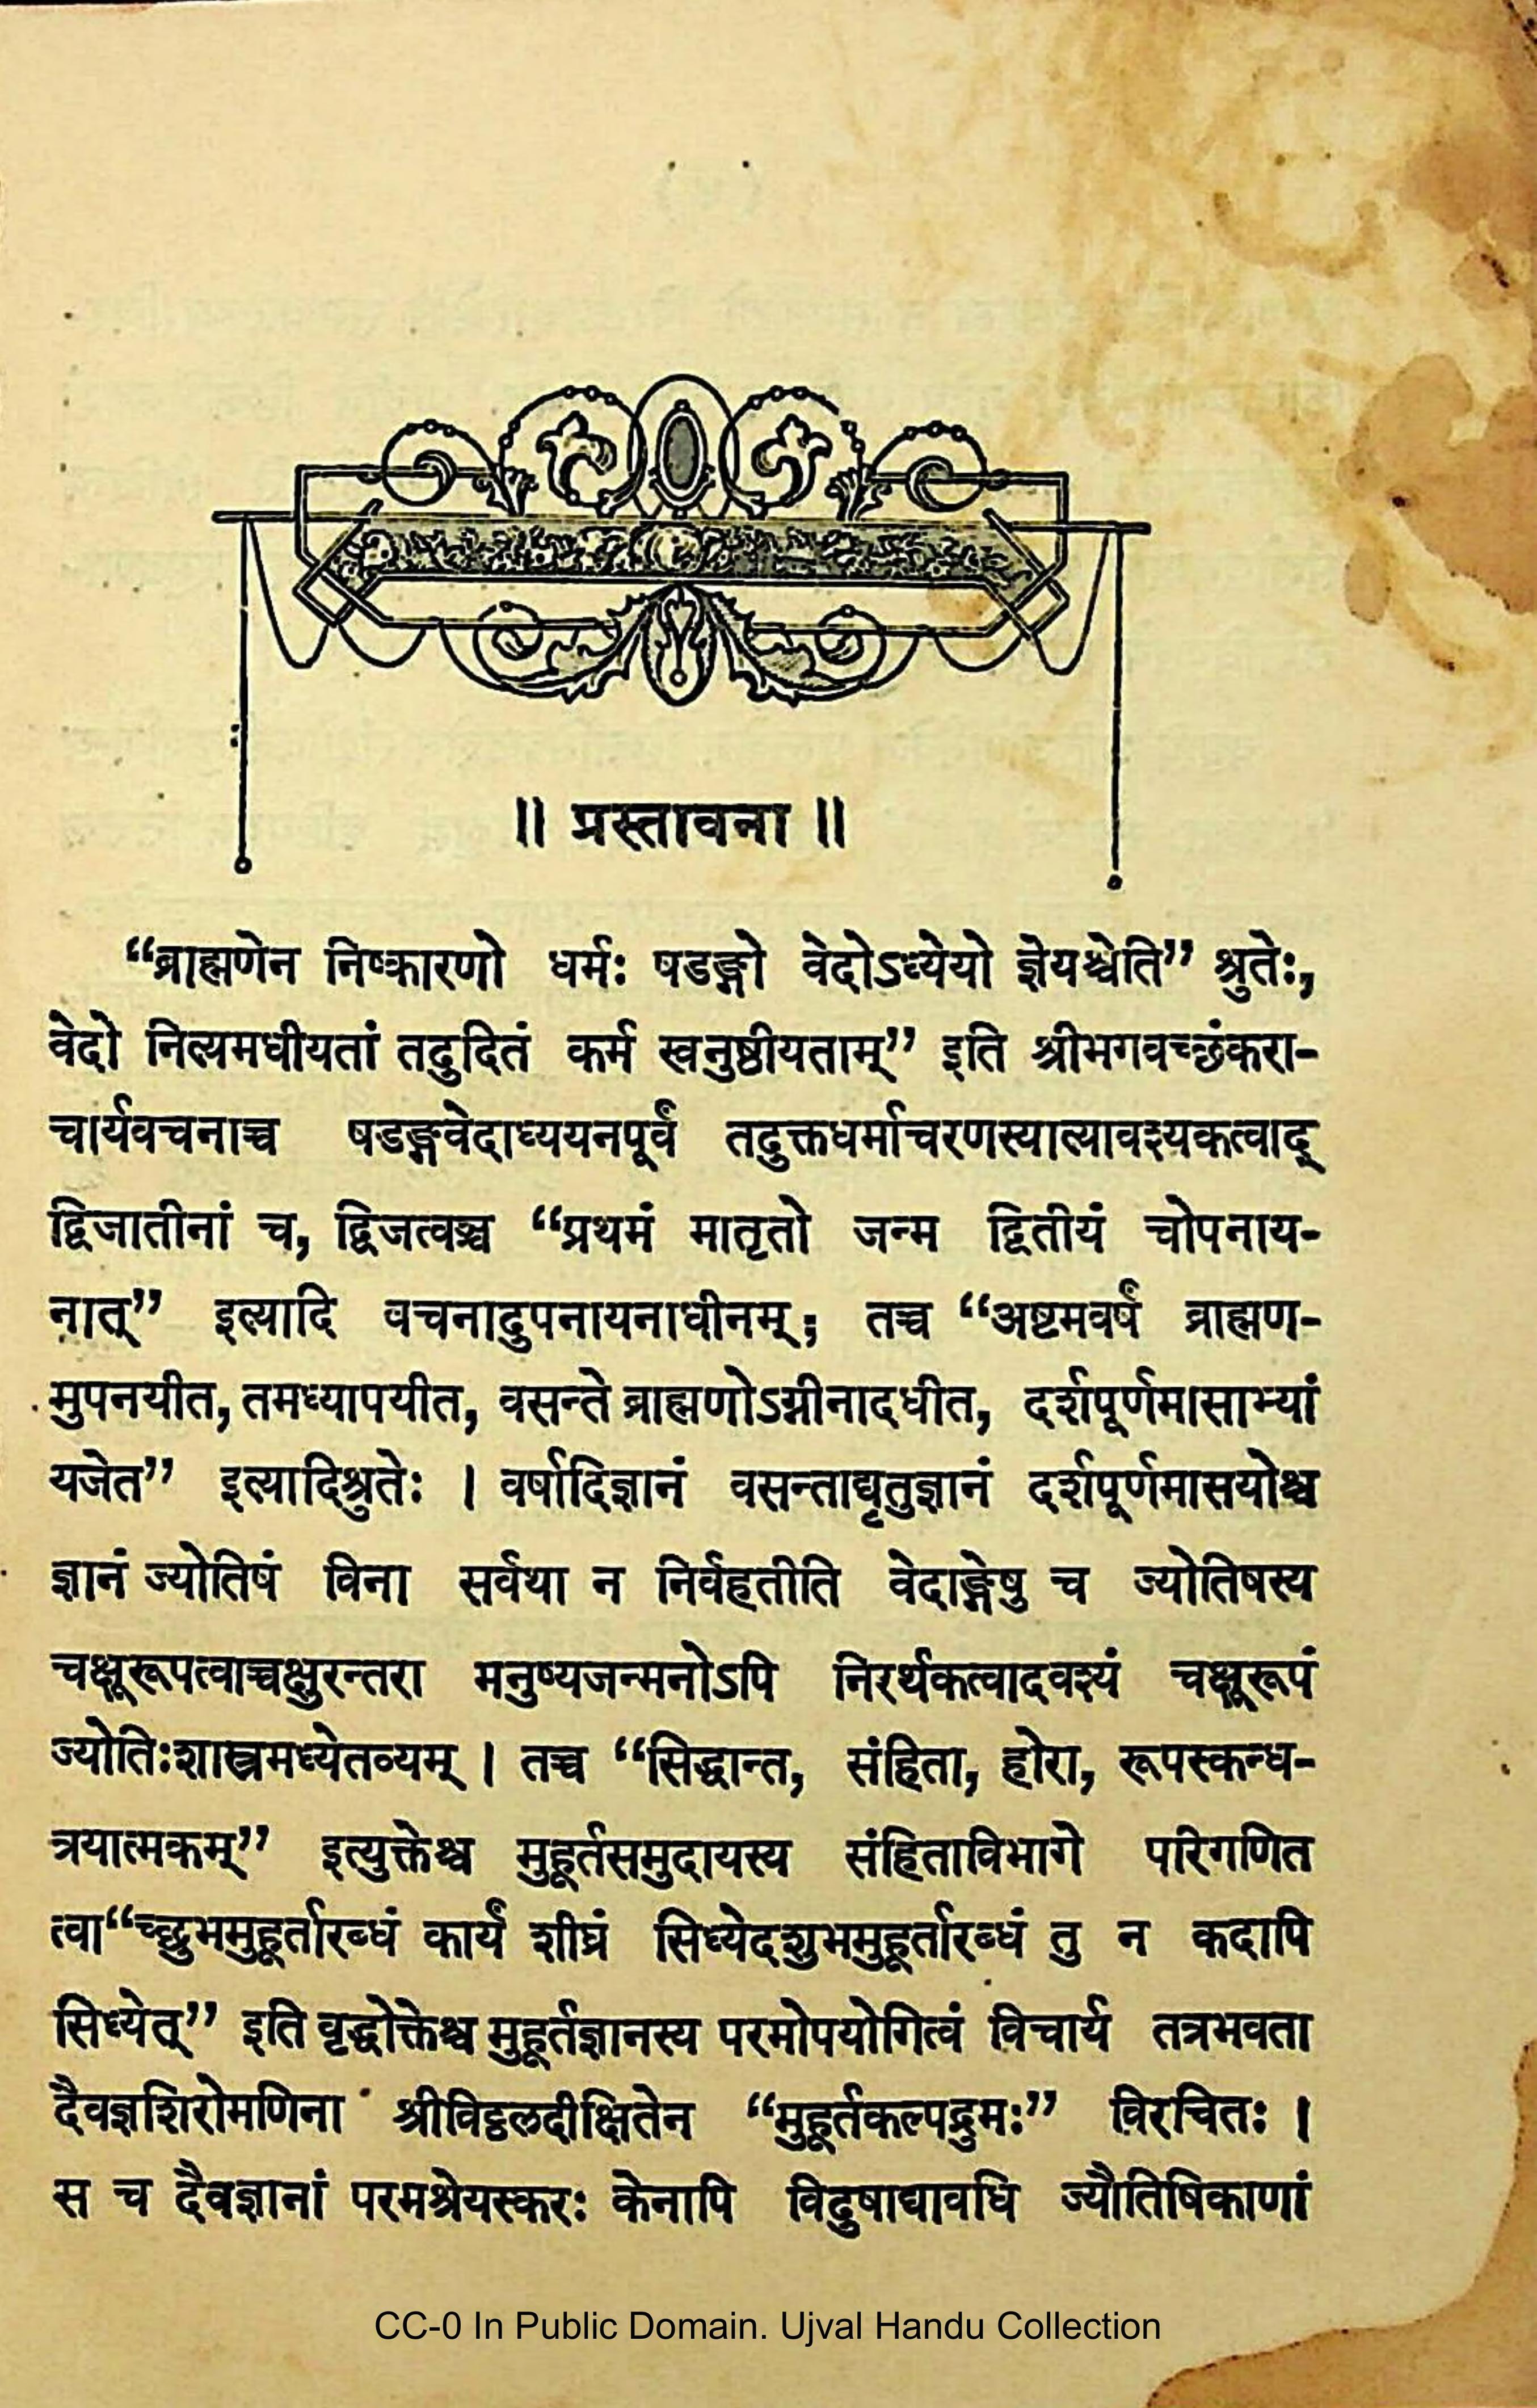 ॥ प्रस्तावना ॥
“ब्राह्मणेन निष्कारणो धर्मः षडङ्गो वेदोऽध्येयो ज्ञेयश्चेति” श्रुतेः,
वेदो नित्यमधीयतां तदुदितं कर्म स्वनुष्ठीयताम्” इति श्रीभगवच्छंकरा-
चार्यवचनाच्च षडङ्गवेदाध्ययनपूर्वं तदुक्तधर्माचरणस्यात्यावश्यकत्वाद्
द्विजातीनां च, द्विजत्वञ्च “प्रथमं मातृतो जन्म द्वितीयं चोपनाय-
नात्” इत्यादि वचनादुपनायनाधीनम्; तच्च “अष्टमवर्षं ब्राह्मण-
मुपनयीत, तमध्यापयीत, वसन्ते ब्राह्मणोऽग्नीनादधीत, दर्शपूर्णमासाभ्यां
यजेत” इत्यादिश्रुतेः । वर्षादिज्ञानं वसन्ताद्यृतुज्ञानं दर्शपूर्णमासयोश्च
ज्ञानं ज्योतिषं विना सर्वथा न निर्वहतीति वेदाङ्गेषु च ज्योतिषस्य
चक्षूरूपत्वाच्चक्षुरन्तरा मनुष्यजन्मनोऽपि निरर्थकत्वादवश्यं चक्षूरूपं
ज्योतिःशास्त्रमध्येतव्यम् । तच्च “सिद्धान्त, संहिता, होरा, रूपस्कन्ध-
त्रयात्मकम्” इत्युक्तेश्च मुहूर्तसमुदायस्य संहिताविभागे परिगणित
त्वा“च्छुभमुहूर्तारब्धं कार्यं शीघ्रं सिध्येदशुभमुहूर्तारब्धं तु न कदापि
सिध्येत्” इति वृद्धोक्तेश्च मुहूर्तज्ञानस्य परमोपयोगित्वं विचार्य तत्रभवता
दैवज्ञशिरोमणिना श्रीविट्ठलदीक्षितेन “मुहूर्तकल्पद्रुमः” विरचितः ।
स च दैवज्ञानां परमश्रेयस्करः केनापि विदुषाद्यावधि ज्यौतिषिकाणां
CC-0 In Public Domain. Ujval Handu Collection